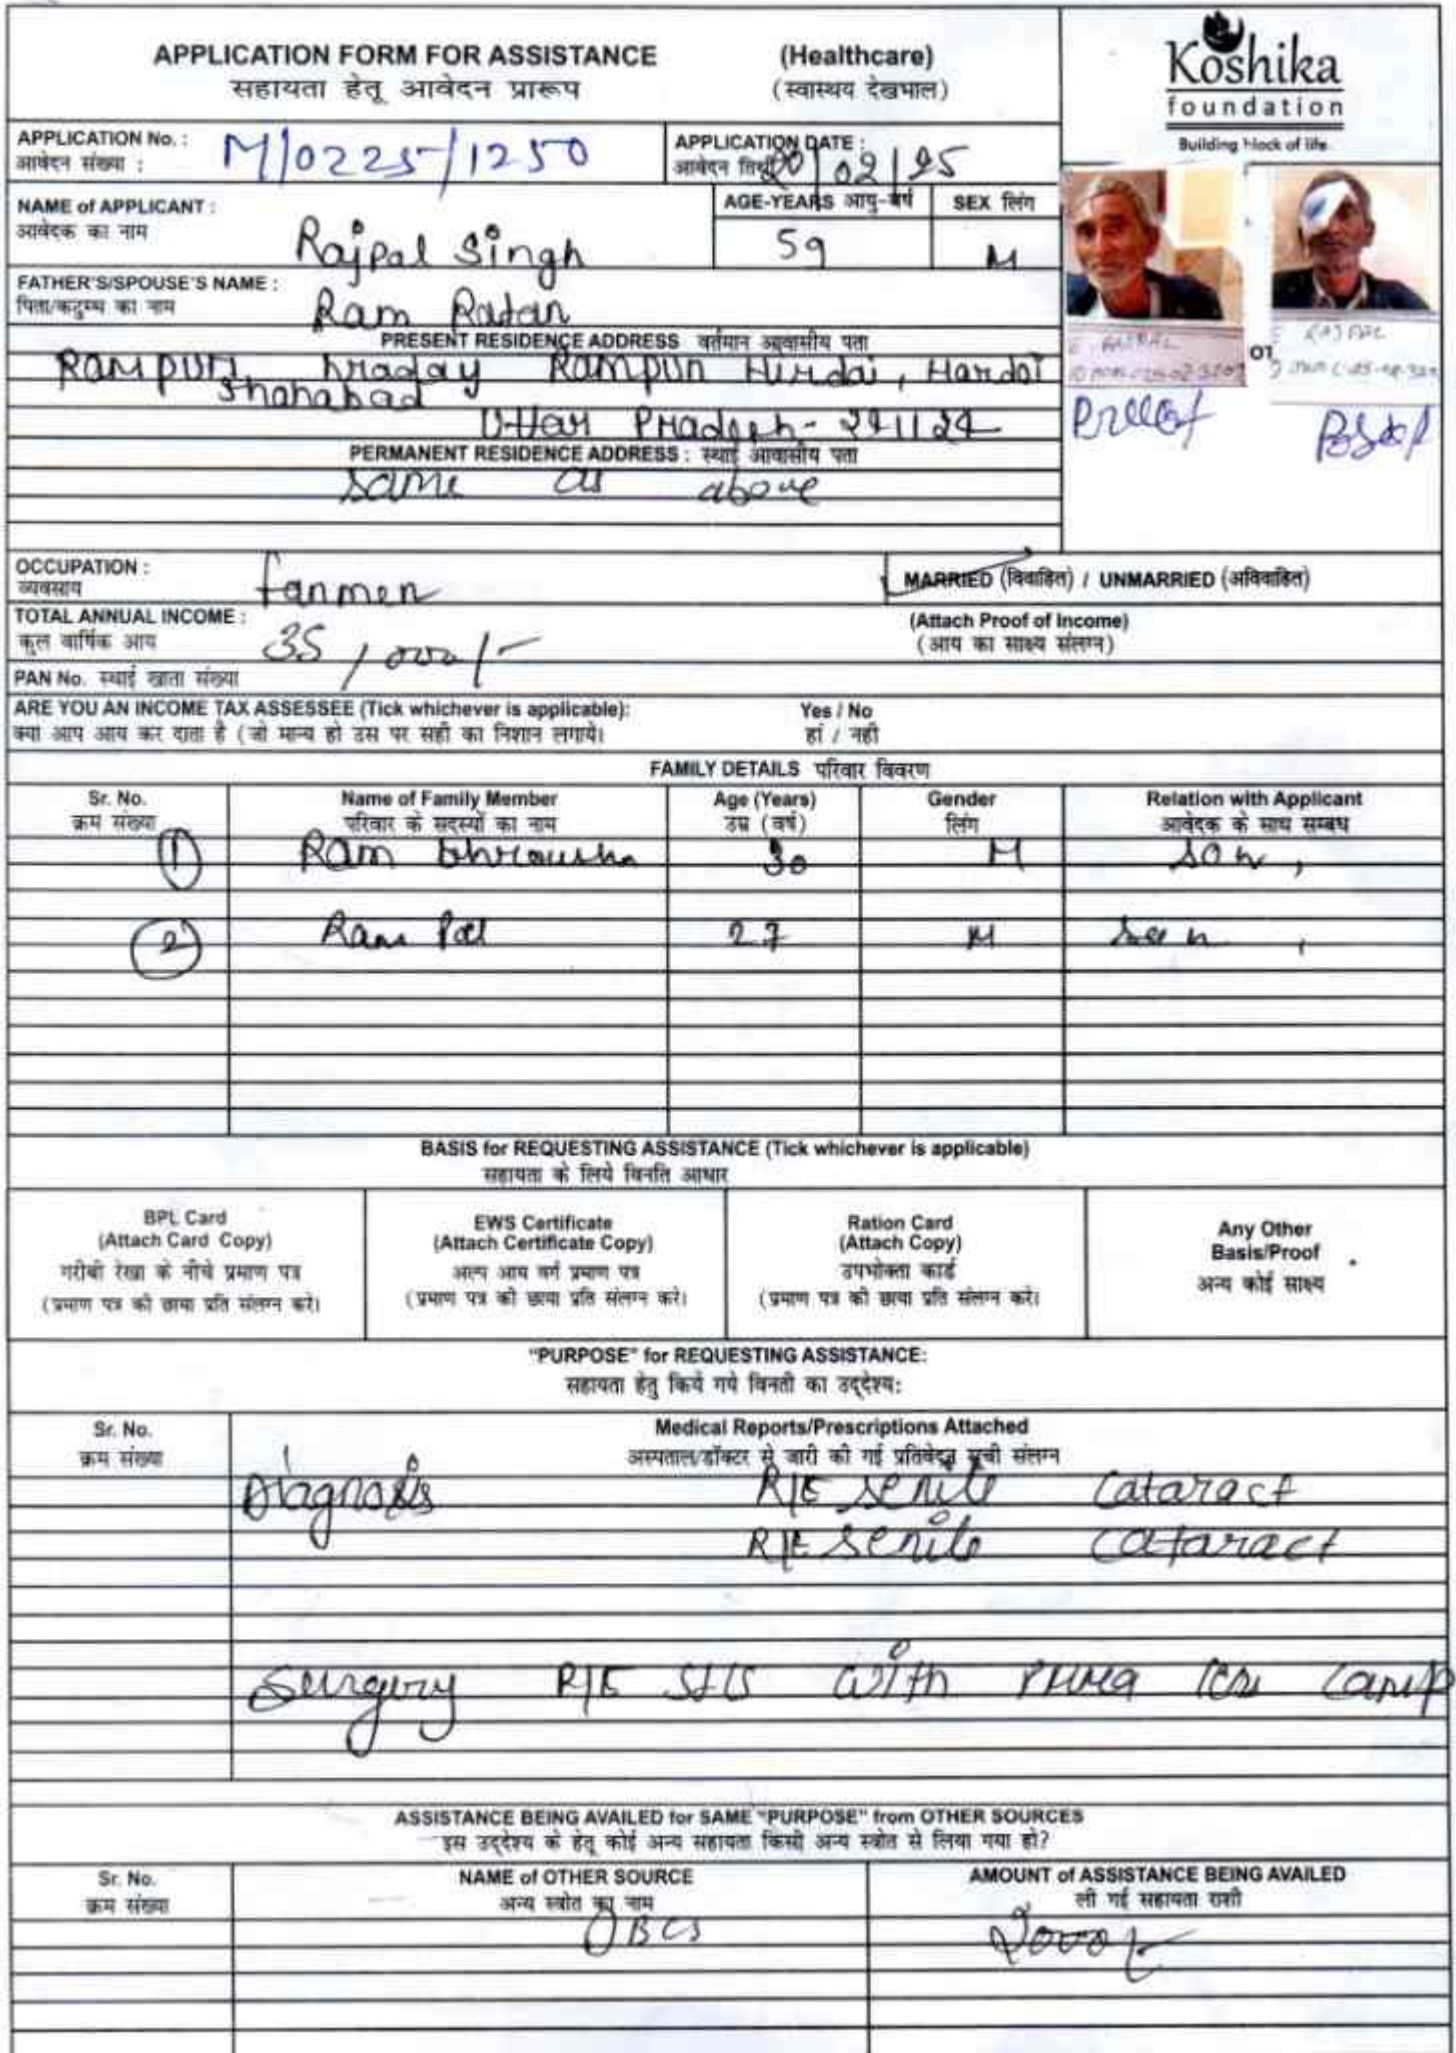 APPLICATION FORM FOR ASSISTANCE (Healthcare)
सहायता हेतू आवेदन प्रारूप (स्वास्थय देखभाल)
Koshika
foundation
Building block of life
APPLICATION No. : M/0225/1250
आवेदन संख्या :
APPLICATION DATE : 20/02/25
आवेदन तिथी
NAME of APPLICANT : Rajpal Singh
आवेदक का नाम
AGE-YEARS आयु-वर्ष 59
SEX लिंग M
FATHER'S/SPOUSE'S NAME : Ram Ratan
पिता/कटुम्ब का नाम
PRESENT RESIDENCE ADDRESS वर्तमान आवासीय पता
Rampur hraday Rampur Hirdai, Hardoi
Shahabad
Uttar Pradesh - 241124
RAJPAL
RAJPAL
Preop
Postop
PERMANENT RESIDENCE ADDRESS : स्थाई आवासीय पता
same as above
OCCUPATION : farmer
व्यवसाय
MARRIED (विवाहित) / UNMARRIED (अविवाहित)
TOTAL ANNUAL INCOME : 35,000/-
कुल वार्षिक आय
(Attach Proof of Income)
(आय का साक्ष्य संलग्न)
PAN No. स्थाई खाता संख्या
ARE YOU AN INCOME TAX ASSESSEE (Tick whichever is applicable): Yes / No
क्या आप आय कर दाता है (जो मान्य हो उस पर सही का निशान लगाये। हां / नही
FAMILY DETAILS परिवार विवरण
Sr. No. Name of Family Member Age (Years) Gender Relation with Applicant
क्रम संख्या परिवार के सदस्यों का नाम उम्र (वर्ष) लिंग आवेदक के साथ सम्बध
1 Ram 30 M son,
2 Ram Pal 27 M son,
BASIS for REQUESTING ASSISTANCE (Tick whichever is applicable)
सहायता के लिये विनति आधार
BPL Card
(Attach Card Copy)
गरीबी रेखा के नीचे प्रमाण पत्र
(प्रमाण पत्र की छाया प्रति संलग्न करे।
EWS Certificate
(Attach Certificate Copy)
अल्प आय वर्ग प्रमाण पत्र
(प्रमाण पत्र की छाया प्रति संलग्न करे।
Ration Card
(Attach Copy)
उपभोक्ता कार्ड
(प्रमाण पत्र की छाया प्रति संलग्न करे।
Any Other
Basis/Proof
अन्य कोई साक्ष्य
"PURPOSE" for REQUESTING ASSISTANCE:
सहायता हेतु किये गये विनती का उद्देश्य:
Sr. No. Medical Reports/Prescriptions Attached
क्रम संख्या अस्पताल/डॉक्टर से जारी की गई प्रतिवेदन सूची संलग्न
Diagnosis R/E senile cataract
R/E senile cataract
Surgery R/E SICS with PMMA IOL camp
ASSISTANCE BEING AVAILED for SAME "PURPOSE" from OTHER SOURCES
इस उद्देश्य के हेतू कोई अन्य सहायता किसी अन्य स्त्रोत से लिया गया हो?
Sr. No. NAME of OTHER SOURCE AMOUNT of ASSISTANCE BEING AVAILED
क्रम संख्या अन्य स्त्रोत का नाम ली गई सहायता राशी
DBCS 2000/-